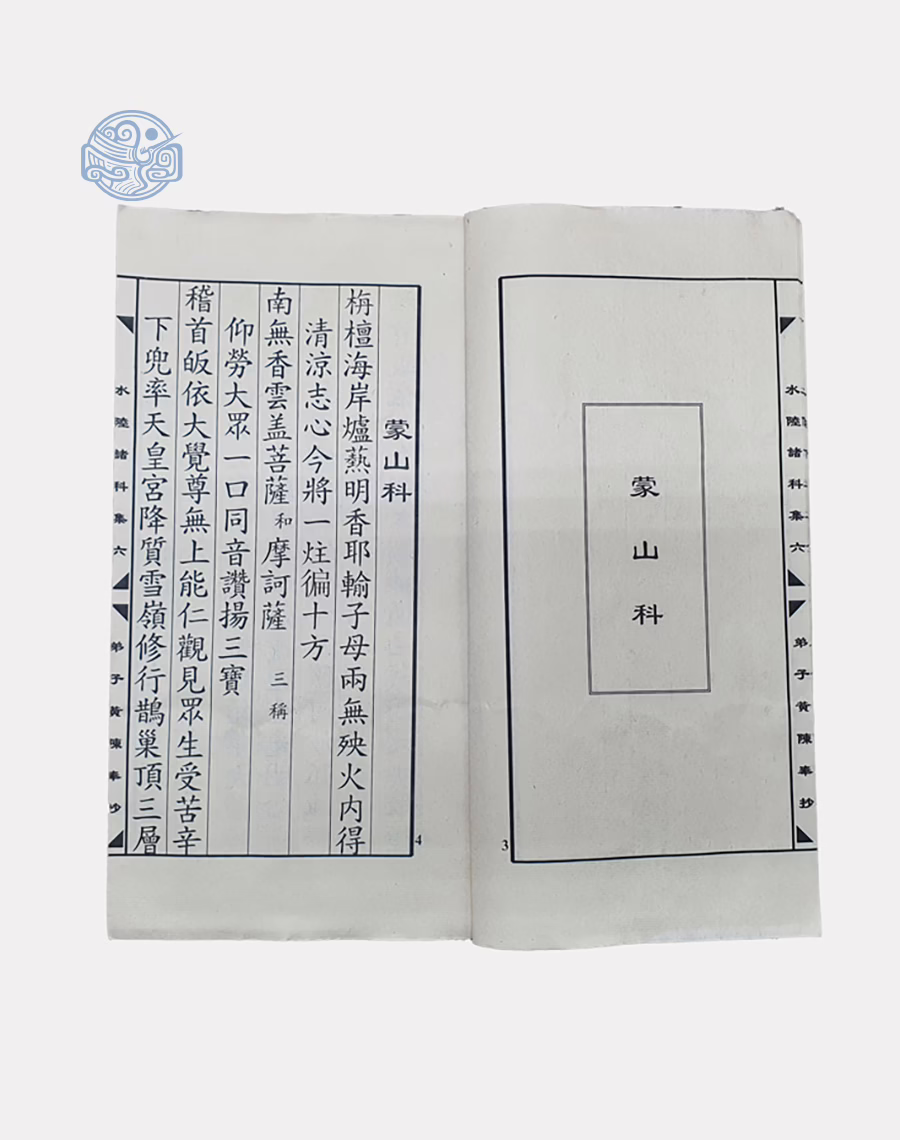 水陸諸科集六
弟子黃陳奉抄
蒙山科
3
蒙山科
栴檀海岸爐爇明香耶輸子母兩無殃火内得
清涼志心今將一炷徧十方
南無香雲盖菩薩 和 摩訶薩 三稱
仰勞大眾一口同音讚揚三寶
稽首皈依大覺尊無上能仁觀見眾生受苦辛
下兜率天皇宮降質雪嶺修行鵲巢頂三層
水陸諸科集六
弟子黃陳奉抄
4